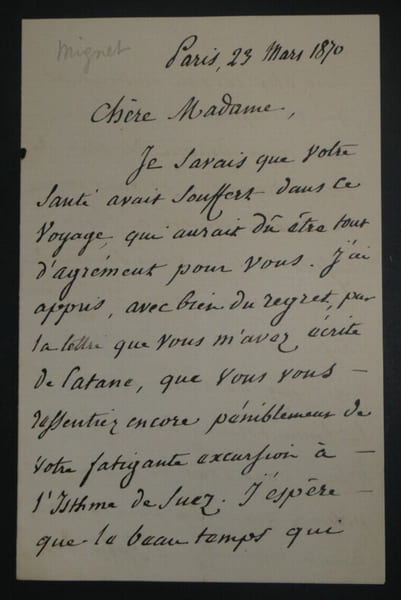 Mignet
Paris, 23 Mars 1870
Chère Madame,
Je savais que votre
santé avait souffert dans ce
voyage, qui aurait dû être tout
d'agrément pour vous. J'ai
appris, avec bien du regret, par
la lettre que vous m'avez écrite
de Catane, que vous vous –
ressentiez encore péniblement de
votre fatigante excursion à –
l'Isthme de Suez. J'espère –
que le beau temps qui